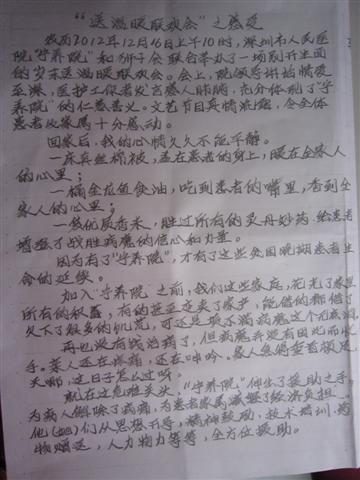 “送温暖联欢会”之感受
农历2012年12月16日上午10时，深圳市人民医
院“宁养院”和狮子会联合举办了一场别开生面
的岁末送温暖联欢会。会上，院领导讲话情爱
至深，医护工作者发言感人肺腑，充分体现了“宁
养院”的仁慈善义。文艺节目真情流露，令全体
患者及家属十分感动。
回家后，我的心情久久不能平静。
一床真丝棉被，盖在患者的身上，暖在全家人
的心里；
一桶金龙鱼食油，吃到患者的嘴里，香到全
家人的心里；
一袋优质香米，胜过所有的灵丹妙药，给患者
增强了战胜病魔的信心和力量。
因为有了“宁养院”，才有了这些贫困晚期患者生
命的延续。
加入“宁养院”之前，我们这些家庭，花光了家里
所有的积蓄，有的甚至变卖了家产，能借的都借了
欠下了很多的饥荒，可还是填不满病魔这个无底洞
再也没有钱治病了，但病魔并没有因此而收
手。亲人还在疼痛，还在呻吟。家人急得
天哪，这日子怎么过呀。
就在这危难关头，“宁养院”伸出了援助之手。
为病人解除了病痛，为患者家属减轻了经济负担。
他（她）们从思想开导，精神鼓励，技术培训，药
物赠送，人力物力等等，全方位援助。